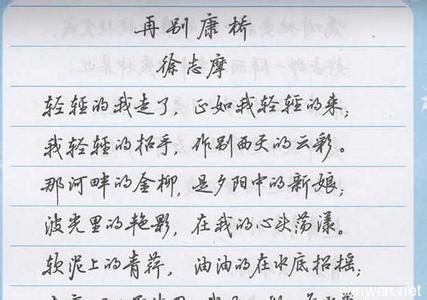 再别康桥
徐志摩
轻轻的我走了，正如我轻轻的来；
我轻轻的招手，作别西天的云彩。
那河畔的金柳，是夕阳中的新娘；
波光里的艳影，在我的心头荡漾。
软泥上的青荇，油油的在水底招摇；